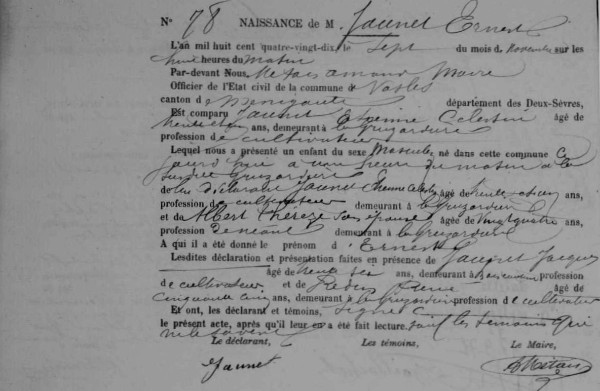 N° 78 NAISSANCE de M. Jaunet Ernest
L'an mil huit cent quatre-vingt-dix, le Sept du mois de Novembre sur les
huit heures du matin
Par-devant Nous, Maire
Officier de l'Etat civil de la commune de Vasles
canton de Menigoute département des Deux-Sèvres,
Est comparu Jaunet Etienne Célestin âgé de
ans, demeurant à
profession de cultivateur
Lequel nous a présenté un enfant du sexe Masculin né dans cette commune
à une heure du matin à la
susdite
de lui déclarant Jaunet Etienne âgé de ans,
profession de cultivateur demeurant à
et de Albert Thérèze son épouse âgé de Vingt quatre ans,
profession de néant demeurant à
A qui il a été donné le prénom d'Ernest
Lesdites déclaration et présentation faites en présence de Jaunet Jacques
âgé de trente six ans, demeurant à profession
de cultivateur, et de Pierre âgé de
cinquante cinq ans, demeurant à profession de cultivateur
Et ont, les déclarant et témoins, signé
le présent acte, après qu'il leur en a été fait lecture. sauf les témoins qui
ne le savent
Le déclarant, Les témoins, Le Maire,
Jaunet